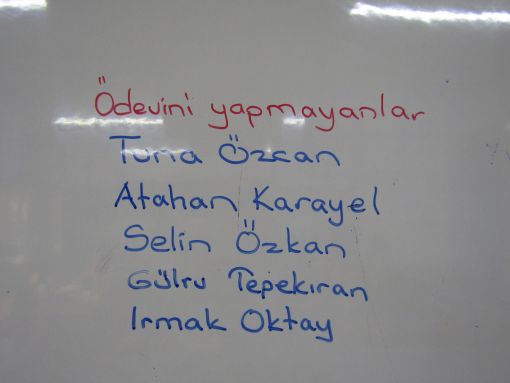 Ödevini yapmayanlar
Tuna Özcan
Atahan Karayel
Selin Özkan
Gülru Tepekıran
Irmak Oktay